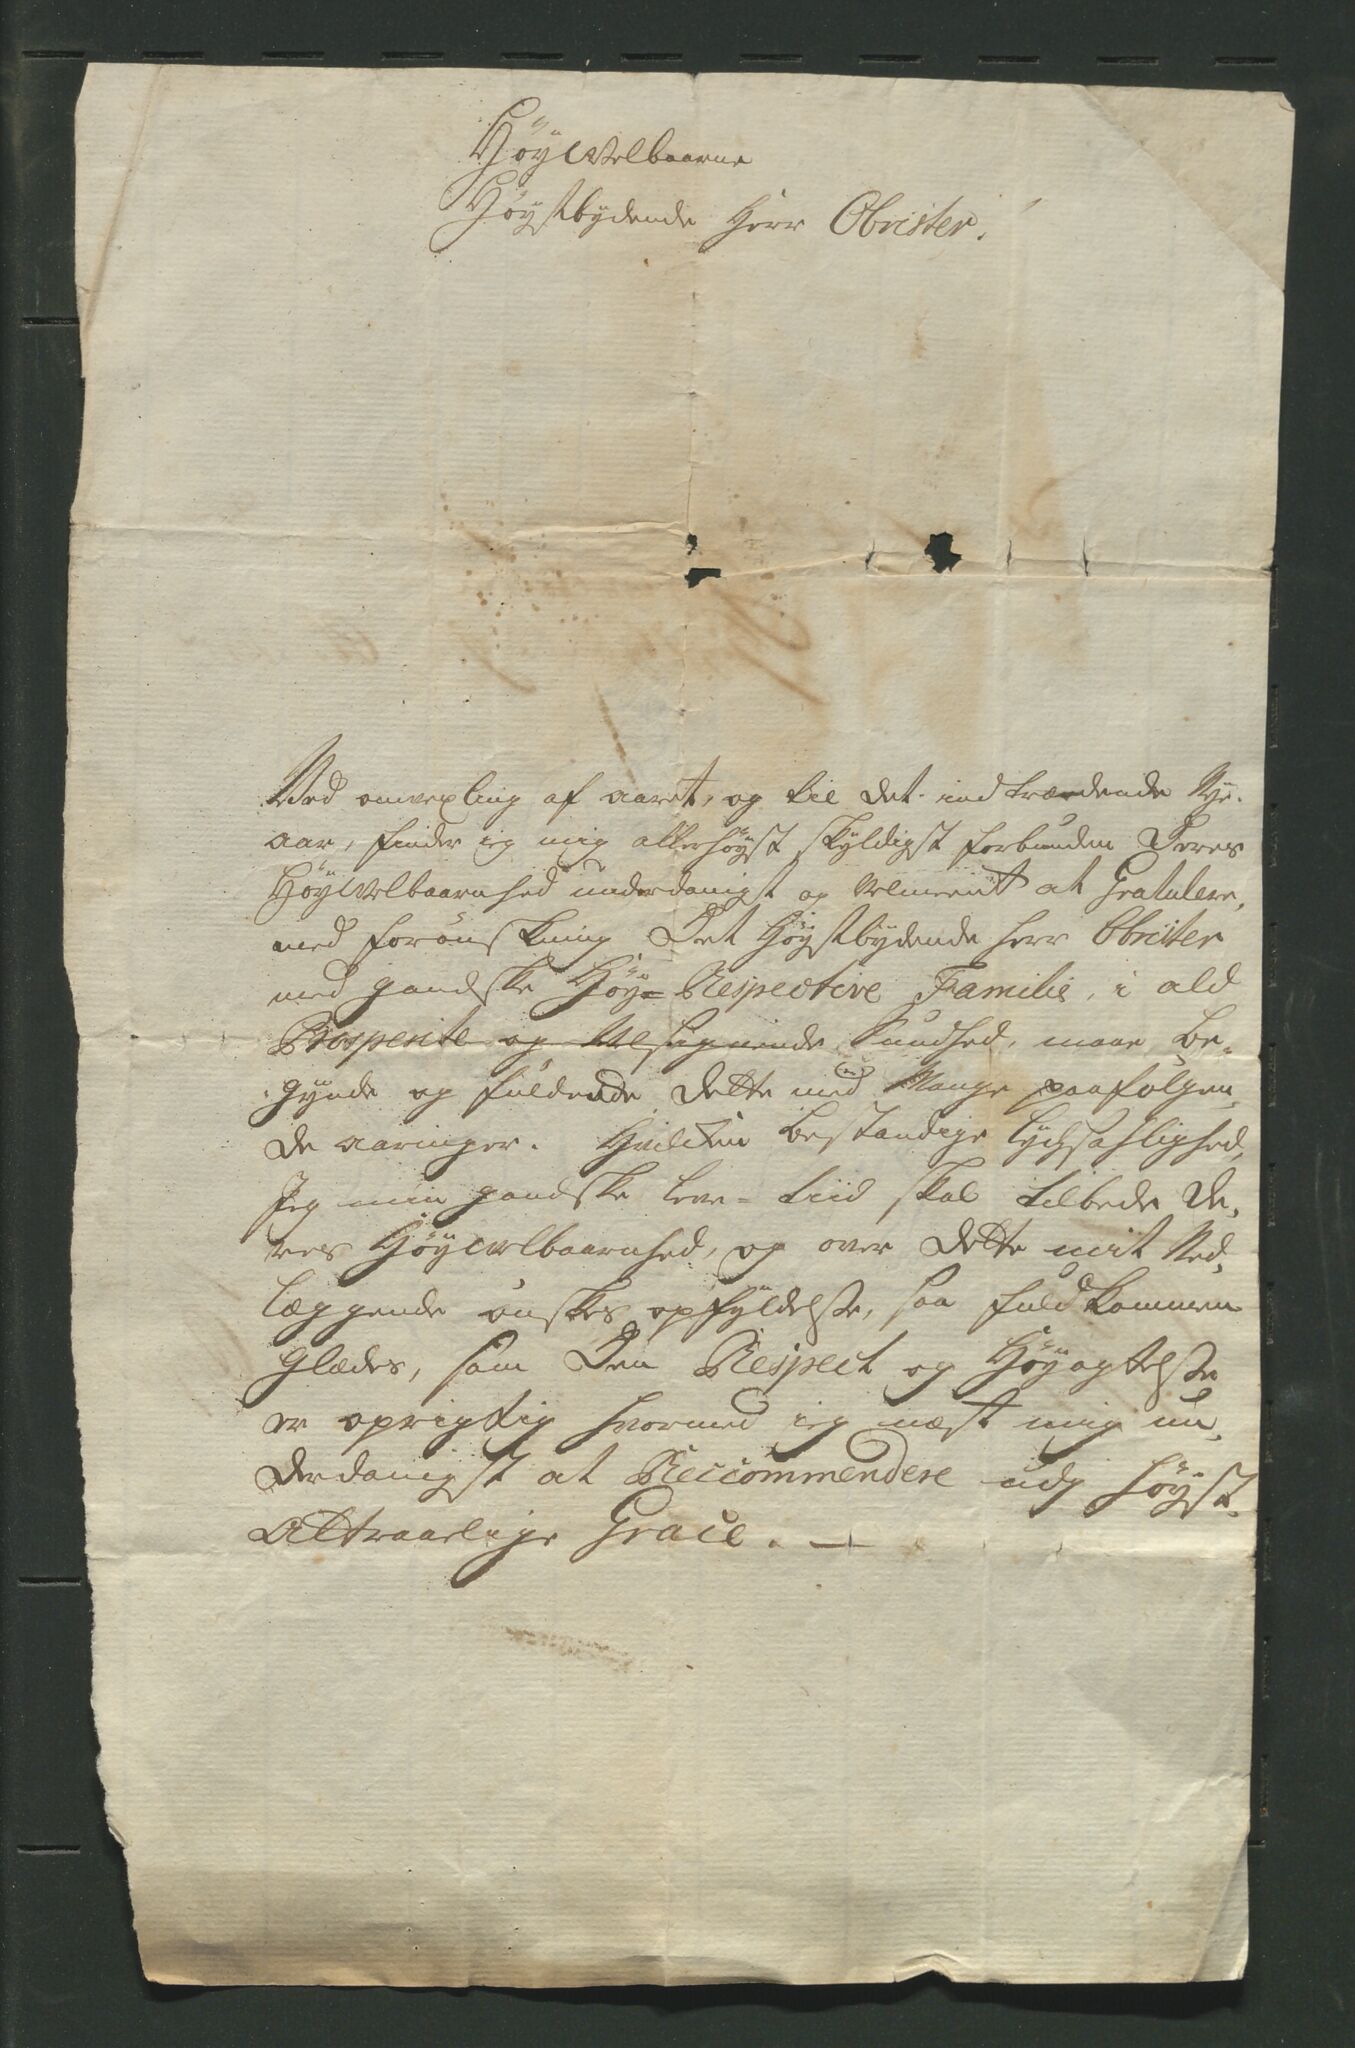 Höywelbaarne
Höystbydende Herr Obrister.
Ved omvexling af aaret, og til det indtrædende Nye-
aar, finder ieg mig allerhöyst skyldigst forbunden Deres
Höywelbaarnhed underdanigst og velmeent at Gratulere,
med forönskning Det Höystbydende herr Obrister
med gandske Höy- Respective Familie, i ald
Prosperite og Velsignende Sundhed, maae be-
gynde og fuldende dette med Mange paafölgen-
de aaringer. Hvilcken bestandige lychsahlighed,
Jeg min gandske leve-tiid skal tilbede De-
res Höywelbaarnhed, og over dette mit Ned-
læggende önskes opfyldelse, saa fuldkommen
Glædes, som Den Respect og Höyagtelse
er oprigtig hvormed ieg næst mig un-
derdanigst at Reccommendere udj höyst-
attraaelige Grace. —